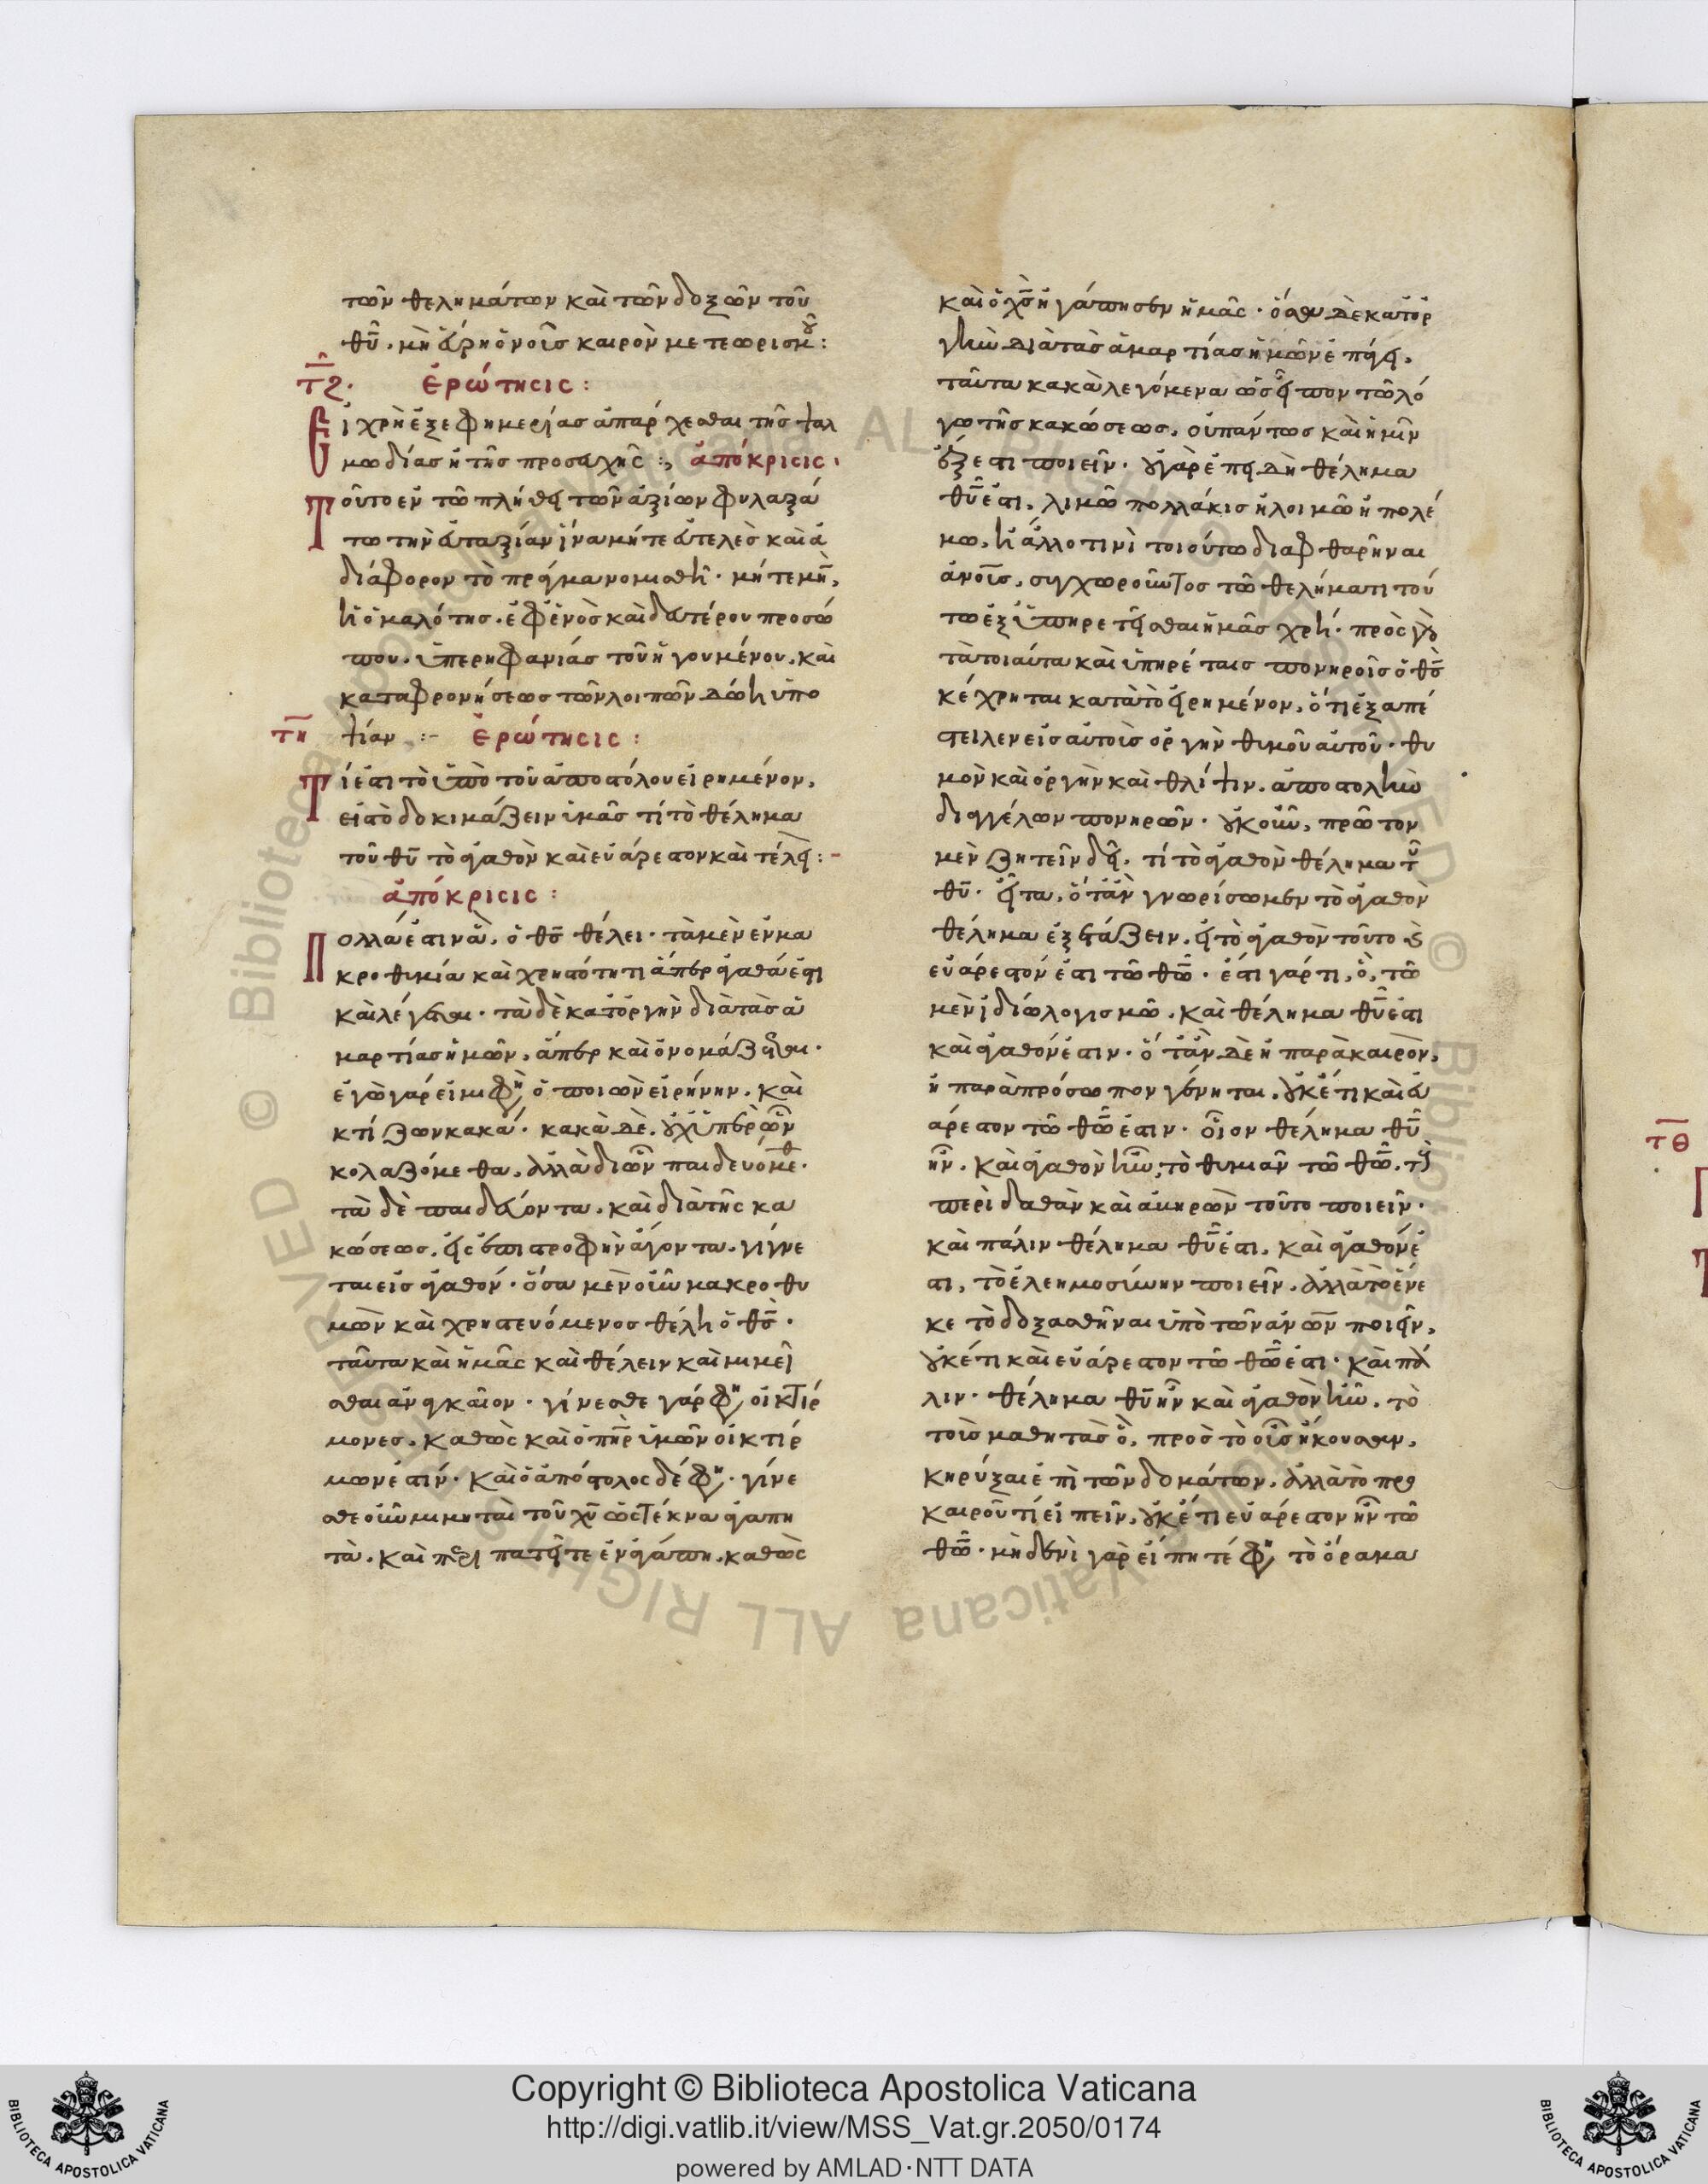 τῶν θελημάτων καὶ τῶν δοξῶν τοῦ
θῦ. μὴ εὕρη ὁ νοῦς καιρὸν μετεωρισμοῦ:
τζ. ἐρώτησις:
Εἰ χρὴ ἐξ ἐφημερίας ἀπάρχεσθαι τῆς ψαλ
μωδίας ἢ τῆς προσευχῆς: ἀπόκρισις.
Τοῦτο ἐν τῶ πλήθει τῶν ἀξίων φυλαξά
τω τὴν εὐταξίαν ἵνα μήτε εὐτελὲς καὶ ἀ
διάφορον τὸ πρᾶγμα νομισθῆ. μήτε μὴν,
ἡ ὁμαλότης. ἐφ ἑνὸς καὶ δευτέρου προσώ
που. ὑπερηφανίας τοῦ ἡγουμένου. καὶ
καταφρονήσεως τῶν λοιπῶν δώη ὑπο
τη ψίαν :- ἐρώτησις:
Τί ἐστι τὸ ὑπὸ τοῦ ἀποστόλου εἰρημένον,
εἰς τὸ δοκιμάζειν ὑμᾶς τί τὸ θέλημα
τοῦ θῦ τὸ ἀγαθὸν καὶ εὐάρεστον καὶ τέλει:-
ἀπόκρισις:
Πολλά ἐστιν ἃ, ὁ θς θέλει. τὰ μὲν ἐν μα
κροθυμία καὶ χρηστότητι ἅπερ ἀγαθά ἐστι
καὶ λέγεται. τὰ δὲ κατ ὀργὴν διὰ τὰς ἁ
μαρτίας ἡμῶν, ἅπερ καὶ ὀνομάζεται.
ἐγὼ γάρ εἰμι φη ὁ ποιῶν εἰρήνην. καὶ
κτίζων κακά. κακὰ δὲ. οὐχ ὑπὲρ ὧν
κολαζόμεθα, ἀλλὰ δι ὧν παιδευόμεθ.
τὰ δὲ παιδεύοντα. καὶ διὰ τῆς κα
κώσεως. εἰς ἐπιστροφὴν ἄγοντα. γίγνε
ται εἰς ἀγαθόν. ὅσα μὲν οὖν μακροθυ
μῶν καὶ χρηστευόμενος θέλη ὁ θς.
ταῦτα καὶ ἡμᾶς καὶ θέλειν καὶ μιμεῖ
σθαι ἀναγκαῖον. γίνεσθε γάρ φη οἰκτίρ
μονες. καθὼς καὶ ὁ πηρ ὑμῶν οἰκτίρ
μων ἐστίν. καὶ ὁ ἀπόστολος δέ φη. γίνε
σθε οὖν μιμηταὶ τοῦ χυ ὡς τέκνα ἀγαπη
τὰ. καὶ περιπατεῖτε ἐν ἀγάπη. καθὼς
καὶ ὁ χς ἠγάπησεν ἡμᾶς. ὅσα δὲ κατ ὀρ
γὴν διὰ τὰς ἁμαρτίας ἡμῶν ἐπάγει.
ταῦτα κακὰ λεγόμενα ὡς εἶπον τῶ λό
γω τῆς κακώσεως. οὐ πάντως καὶ ἡμῖν
ἔξεστι ποιεῖν. οὐ γὰρ ἐπειδὴ θέλημα
θῦ ἐστι. λιμῶ πολλάκις ἢ λοιμῶ ἢ πολέ
μω. ἢ ἄλλο τινὶ τοιούτω διαφθαρῆναι
ἀνοῖς. συγχωροῦντος τῶ θελήματι τού
τω ἐξυπηρετεῖσθαι ἡμᾶς χρή. πρὸς γὰρ
τὰ τοιαῦτα καὶ ὑπηρέταις πονηροῖς ὁ θς
κέχρηται κατὰ τὸ εἰρημένον. ὅτι ἐξαπέ
στειλεν εἰς αὐτοὺς ὀργὴν θυμοῦ αὐτοῦ. θυ
μὸν καὶ ὀργὴν καὶ θλίψιν. ἀποστολὴν
δι ἀγγέλων πονηρῶν. οὐκοῦν, πρῶτον
μὲν ζητεῖν δεῖ. τί τὸ ἀγαθὸν θέλημα τοῦ
θῦ. εἶτα, ὅταν γνωρίσωμεν τὸ ἀγαθὸν
θέλημα ἐξετάζειν. εἰ τὸ ἀγαθὸν τοῦτο καὶ
εὐάρεστόν ἐστι τῶ θῶ. ἐστι γάρ τι, ὃ, τῶ
μὲν ἰδίω λογισμῶ. καὶ θέλημα θῦ ἐστι
καὶ ἀγαθόν ἐστιν. ὅταν δὲ ἢ παρὰ καιρὸν,
ἢ παρὰ πρόσωπον γένηται. οὐκέτι καὶ εὐ
άρεστον τῶ θῶ ἐστιν. οἷον θέλημα θῦ
ἦν. καὶ ἀγαθὸν ἦν, τὸ θυμιᾶν τῶ θῶ.
περὶ δαθὰν καὶ ἀβηρὼν τοῦτο ποιεῖν.
καὶ πάλιν θέλημα θῦ ἐστι. καὶ ἀγαθόν ἐ
στι, τὸ ἐλεημοσύνην ποιεῖν. ἀλλὰ τὸ ἕνε
κε τὸ δοξασθῆναι ὑπὸ τῶν ἀνῶν ποιεῖν,
οὐκέτι καὶ εὐάρεστον τῶ θῶ ἐστι. καὶ πά
λιν. θέλημα θῦ ἦν καὶ ἀγαθὸν ἦν. τὸ
τοὺς μαθητὰς ὃ, πρὸς τὸ οὖς ἤκουσαν,
κηρύξαι ἐπὶ τῶν δομάτων. ἀλλὰ τὸ πρὸ
καιροῦ τί εἰπεῖν, οὐκέτι εὐάρεστον ἦν τῶ
θῶ. μηδενὶ γὰρ εἴπητέ φη τὸ ὅραμα
τθ
Copyright © Biblioteca Apostolica Vaticana
http://digi.vatlib.it/view/MSS_Vat.gr.2050/0174
powered by AMLAD·NTT DATA